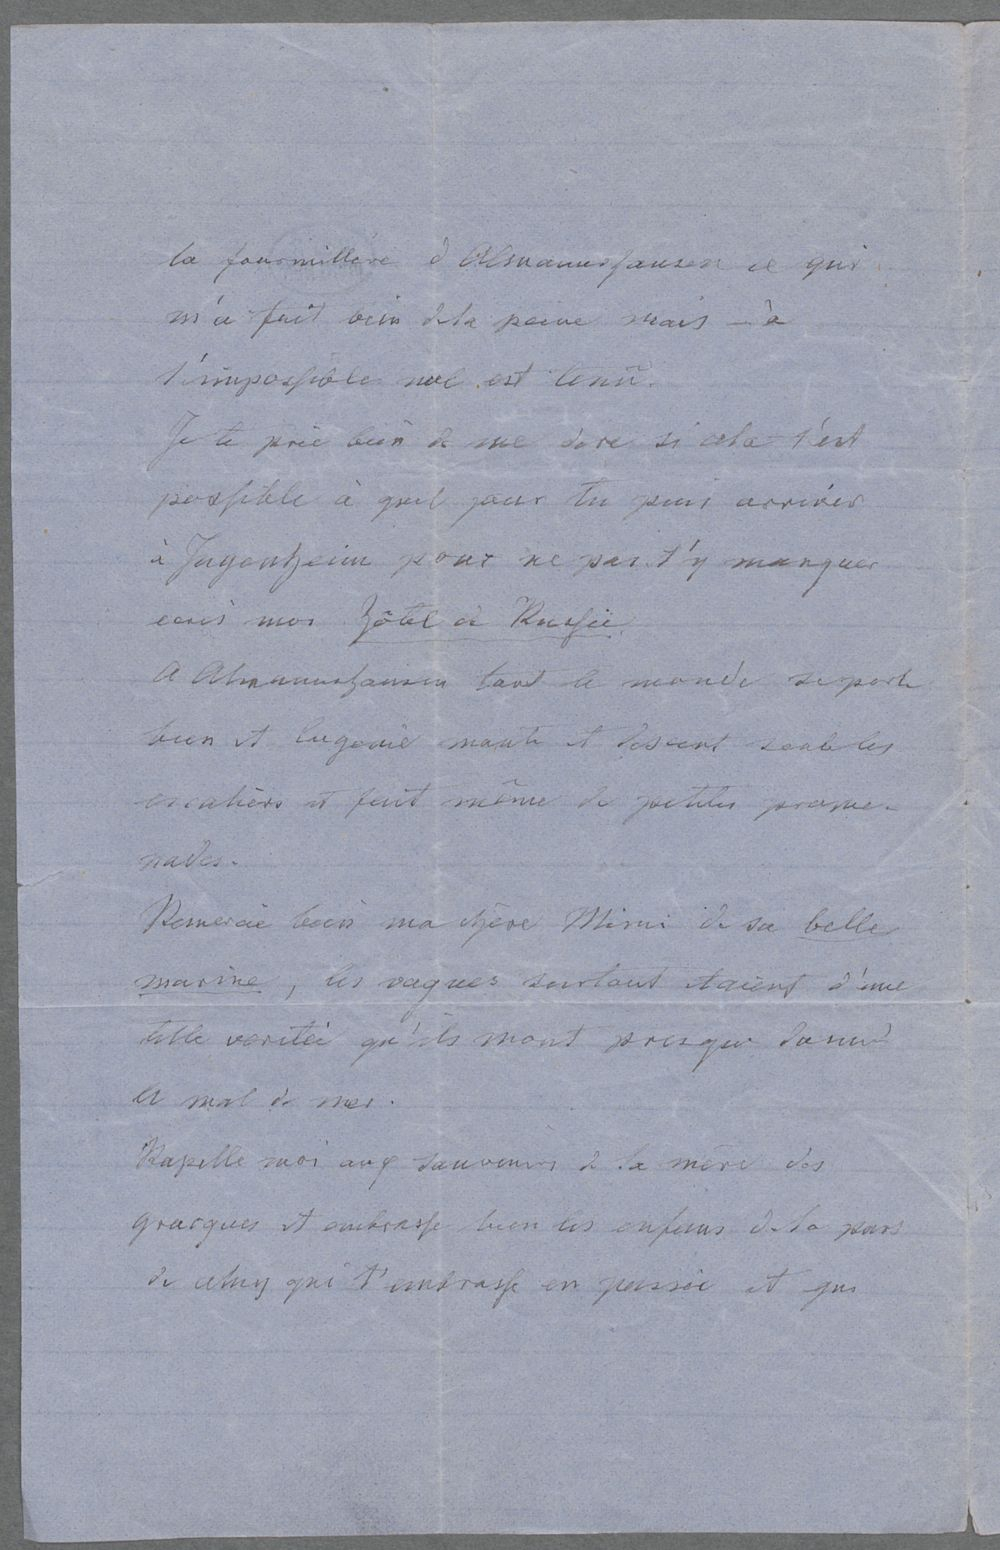 la fourmillère d'Asmanshausen ce qui
m'a fait bien de la peine mais — à
l'impossible nul est tenû.
Je te prie bien de me dire si cela t'est
possible à quel jour tu puis arriver
à Jugenheim pour ne pas t'y manquer
ecris moi hôtel de Russie
A Asmanshausen tout le monde se porte
bien et Eugenie monte et descent seule les
escaliers et fait même de petites prome-
nades.
Remercie bien ma chère Mimi de sa belle
marine, les vagues surtout étaient d'une
telle veritée qu'ils mont presque donné
le mal de mer.
Rapelle moi aux souvenirs de la mère des
gracques et embrasse bien les enfans de la part
de celuy qui t'embrasse en pensée et qui